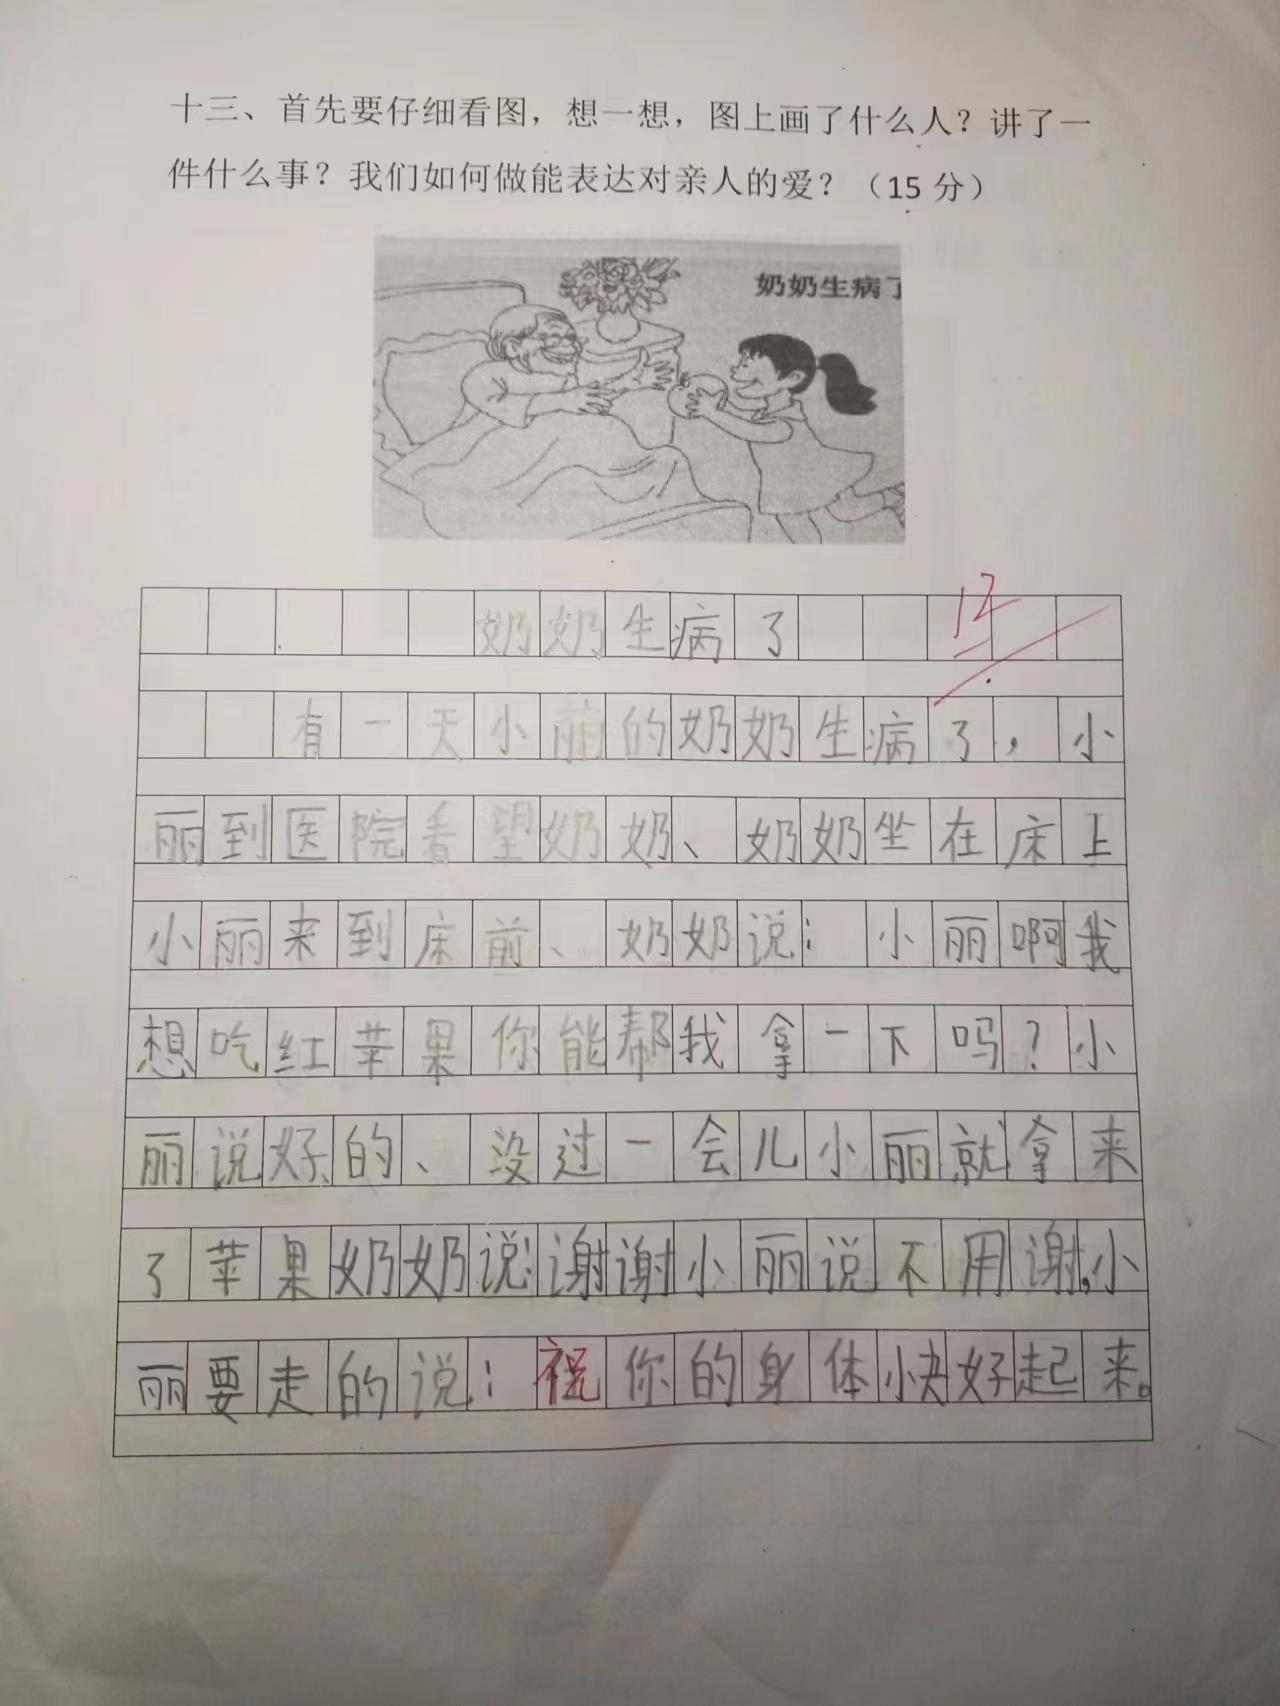 十三、首先要仔细看图，想一想，图上画了什么人？讲了一
件什么事？我们如何做能表达对亲人的爱？（15 分）
奶奶生病了
12
奶奶生病了
有一天小丽的奶奶生病了，小
丽到医院看望奶奶、奶奶坐在床上
小丽来到床前、奶奶说：小丽啊我
想吃红苹果你能帮我拿一下吗？小
丽说好的、没过一会儿小丽就拿来
了苹果奶奶说：谢谢小丽说不用谢。小
丽要走的说：祝你的身体快好起来。